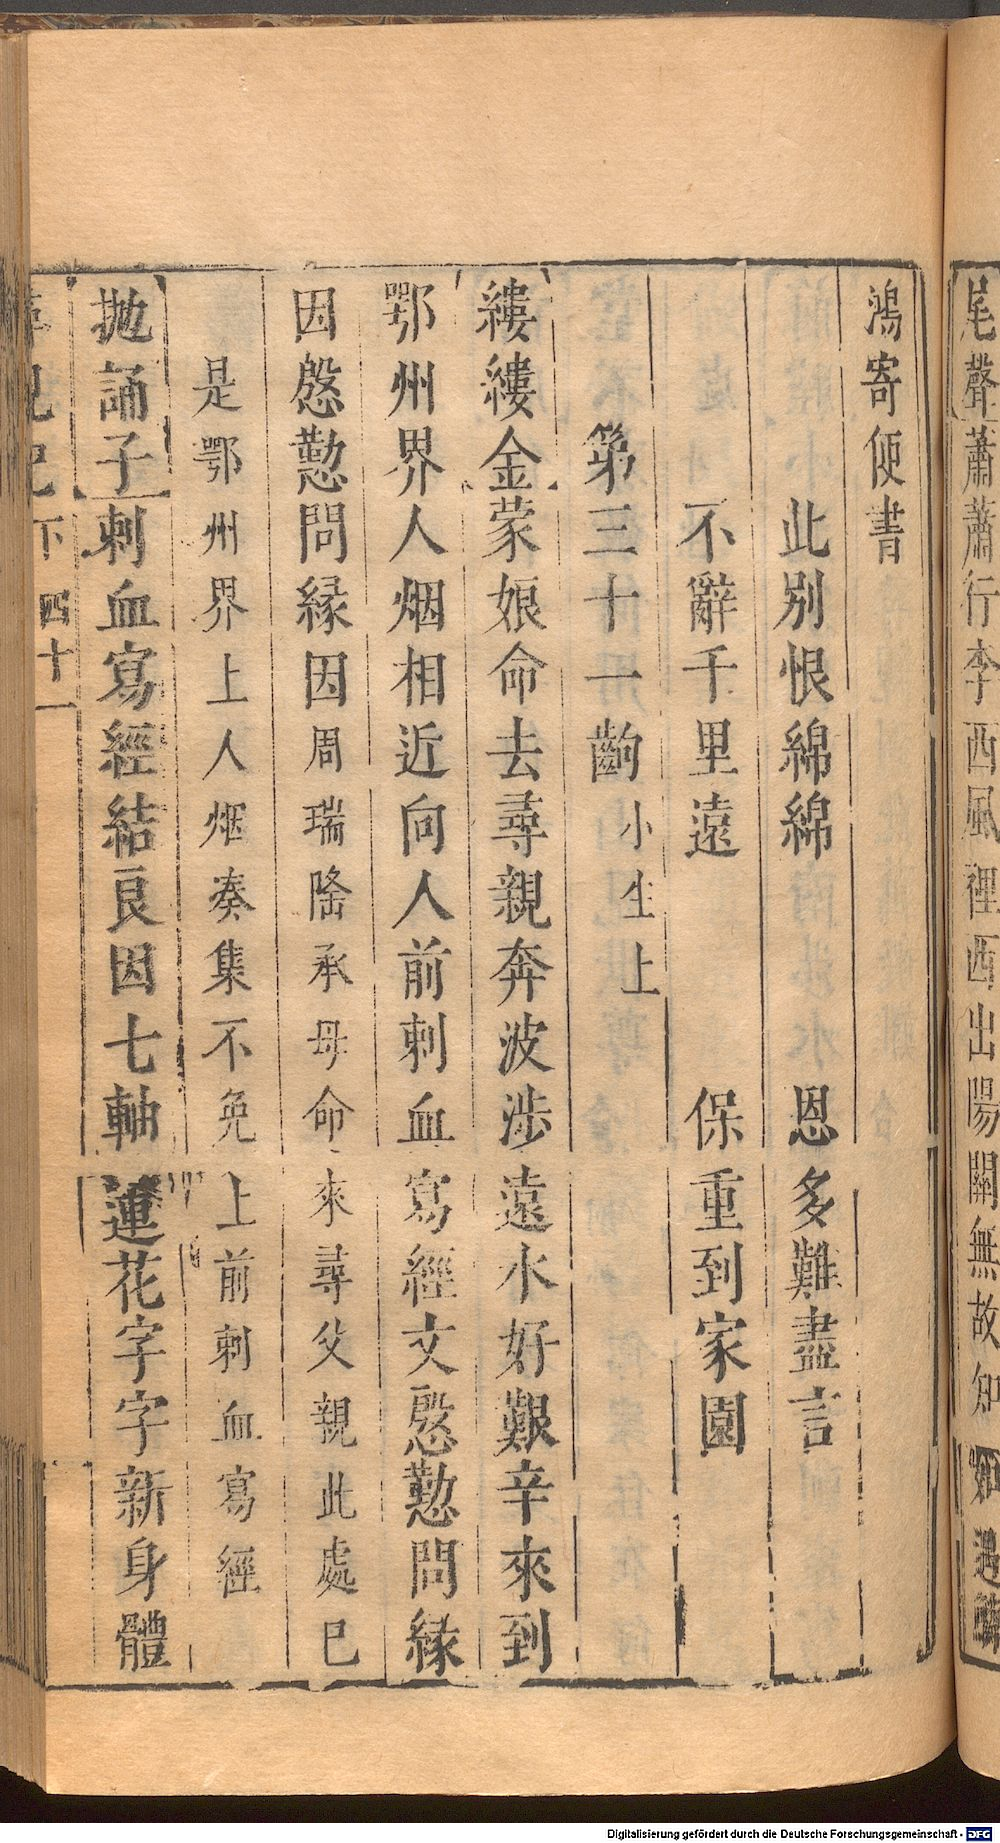 尾聲蕭蕭行李西風裡西出陽關無故知
鴻寄便書
此別恨綿綿 恩多難盡言
不辭千里遠 保重到家園
第三十一齣小生上
縷縷金蒙娘命去尋親奔波涉遠水好艱辛來到
鄂州界人烟相近向人前刺血寫經文慇懃問緣
因慇懃問緣因周瑞隆承母命來尋父親此處已
是鄂州界上人烟奏集不免上前刺血寫經
拋誦子刺血寫經結良因七軸蓮花字字新身體
記下 四十一
Digitalisierung gefördert durch die Deutsche Forschungsgemeinschaft - DFG